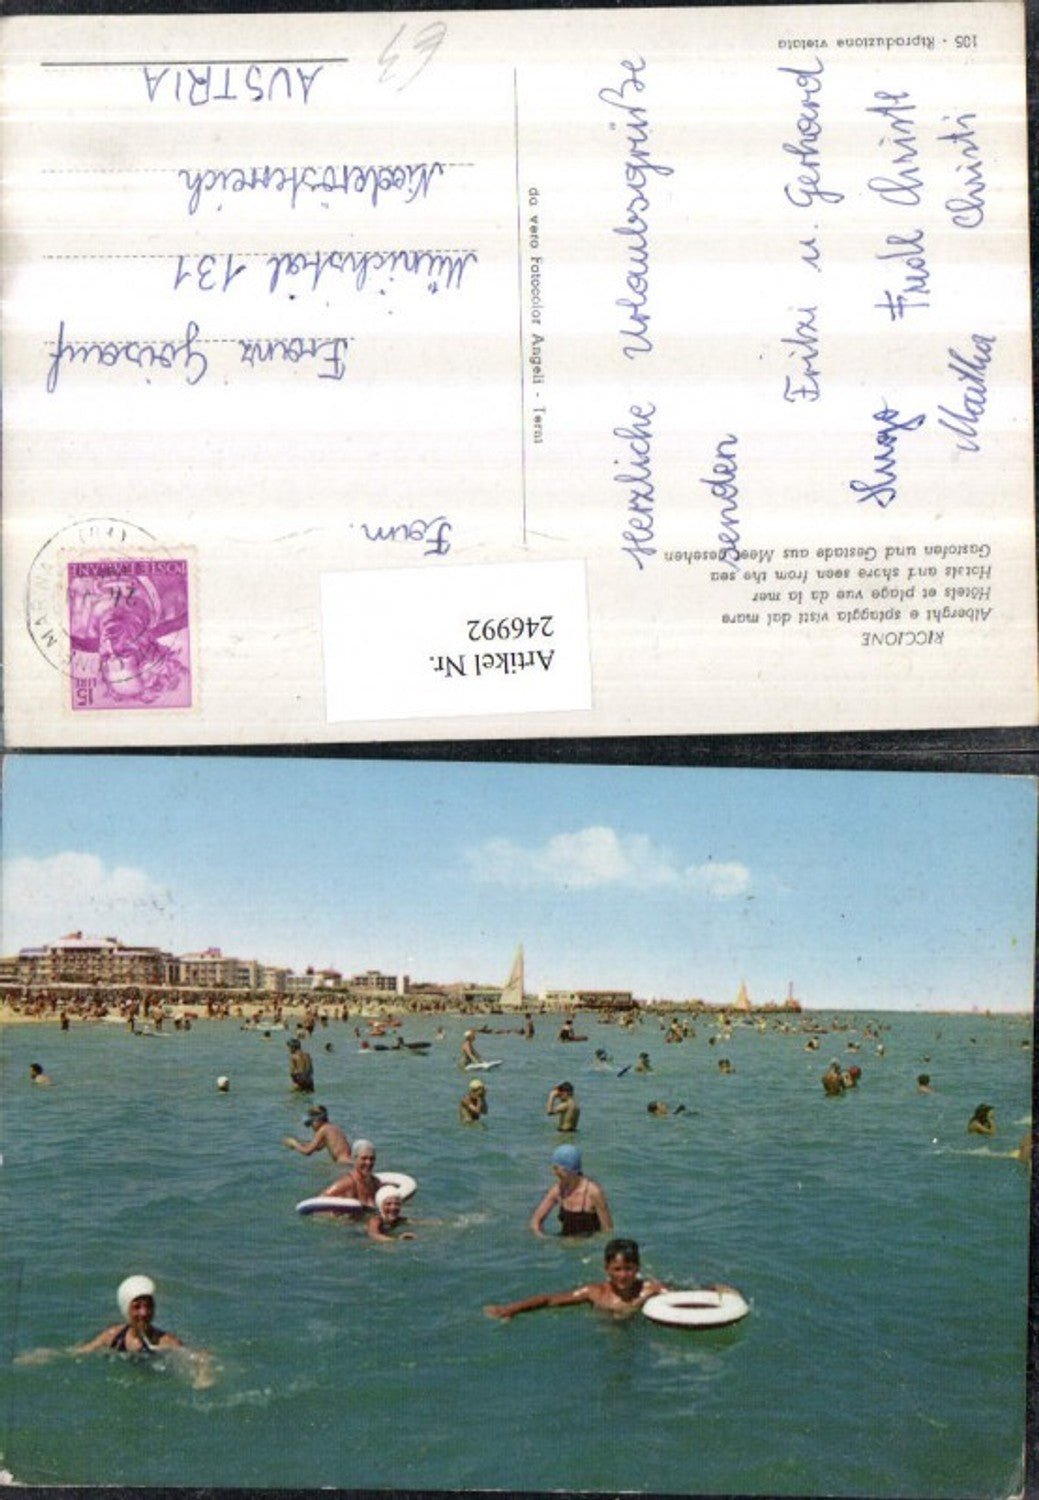 RICCIONE
Alberghi e spiaggia visti dal mare
Hôtels et plage vue da la mer
Hotels and shore seen from the sea
Gastofen und Gestade aus Meer gesehen
Artikel Nr.
246992
15
LIRE
POSTE ITALIANE
Herzliche Urlaubsgrüße
senden
Fritzi u. Gerhard
Friedl Christl
Martha Christi
da vero Fotocolor Angeli - Terni
Fam.
Franz
Münichstal 131
Niederösterreich
AUSTRIA
105 - Riproduzione vietata